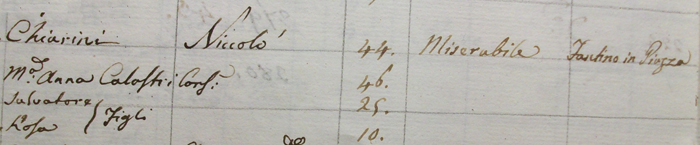 Chiarini Niccolò 44. Miserabile Fantino in Piazza
M.ª Anna Calostri Cons: 46.
Salvatore } Figli 25.
Rosa 10.